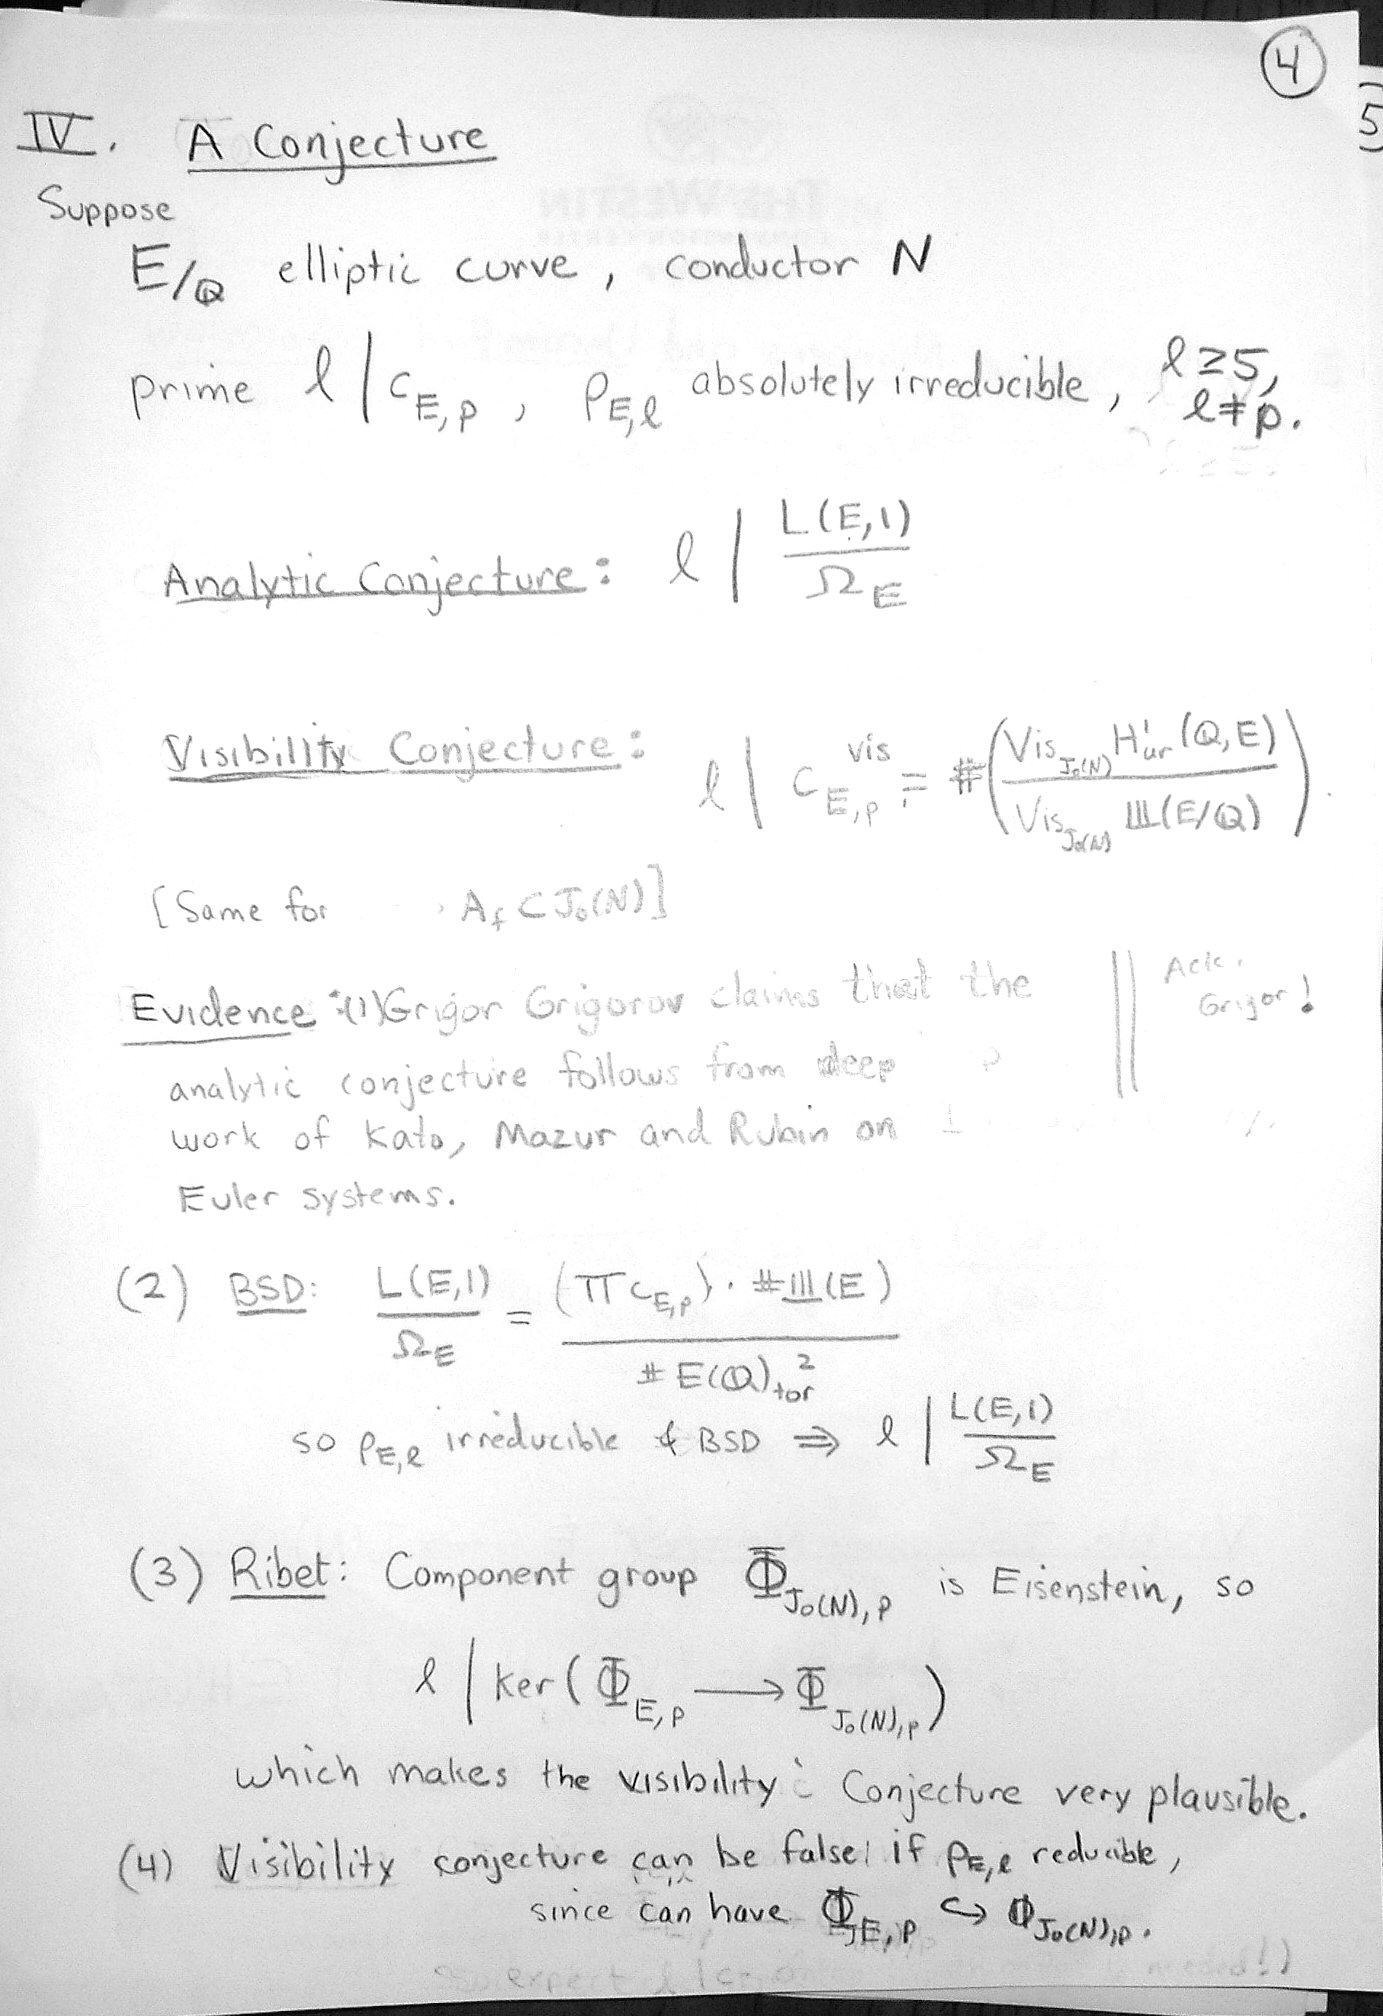 4
5
IV. A Conjecture
Suppose
E/ℚ elliptic curve, conductor N
prime ℓ | c_{E,p}, ρ_{E,ℓ} absolutely irreducible, ℓ ≥ 5,
ℓ ≠ p.
Analytic Conjecture: ℓ | L(E,1) / Ω_E
Visibility Conjecture: ℓ | c_{E,p}^{vis} = #(Vis_{J₀(N)} H¹_{ur}(ℚ,E) / Vis_{J₀(N)} Ш(E/ℚ)).
[Same for A_f ⊂ J₀(N)]
Evidence: (1) Grigor Grigorov claims that the
Ack.
Grigor!
analytic conjecture follows from deep
work of Kato, Mazur and Rubin on
Euler systems.
(2) BSD: L(E,1) / Ω_E = (π c_{E,p}) · #Ш(E) / #E(ℚ)_{tor}²
so ρ_{E,ℓ} irreducible & BSD ⇒ ℓ | L(E,1) / Ω_E
(3) Ribet: Component group Φ_{J₀(N),p} is Eisenstein, so
ℓ | ker(Φ_{E,p} → Φ_{J₀(N),p})
which makes the visibility Conjecture very plausible.
(4) Visibility conjecture can be false if ρ_{E,ℓ} reducible,
since can have Φ_{E,p} ↪ Φ_{J₀(N),p}.